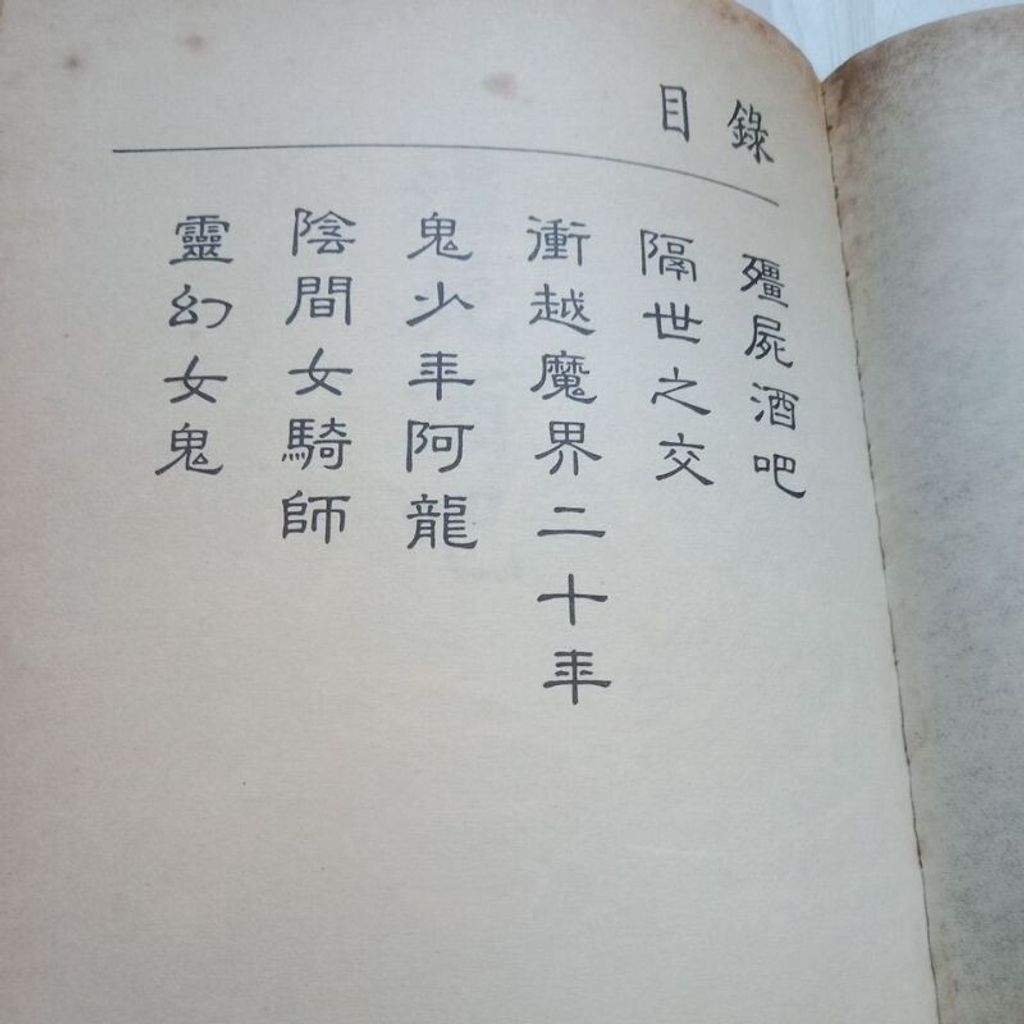 目錄
殭屍酒吧
隔世之交
衝越魔界二十年
鬼少年阿龍
陰間女騎師
靈幻女鬼